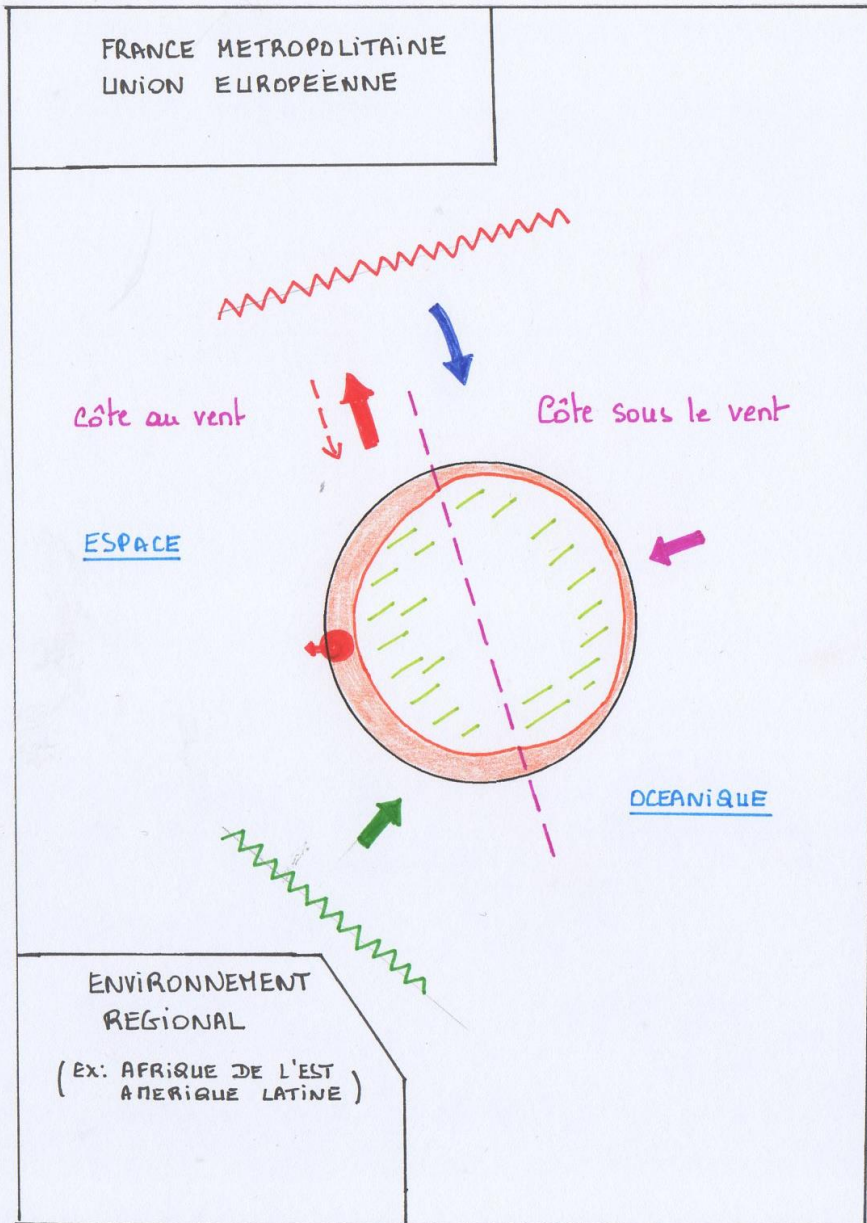 FRANCE METROPOLITAINE
UNION EUROPEENNE
Côte au vent
Côte sous le vent
ESPACE
OCEANIQUE
ENVIRONNEMENT
REGIONAL
(EX: AFRIQUE DE L'EST
AMERIQUE LATINE)